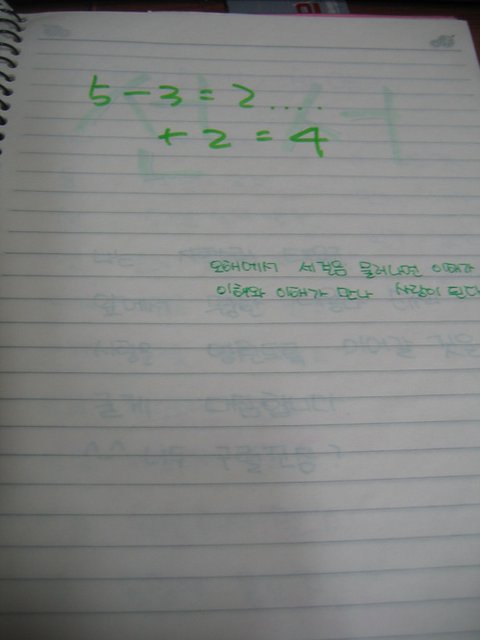 5 - 3 = 2 . . . . .
+ 2 = 4
오해에서 세걸음 물러나면 이해가
이해와 이해가 만나 사랑이 된다